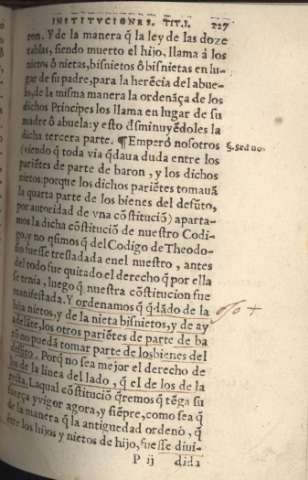 INSTITVCIONES. TIT. I. 227
ron. Y de la manera q̃ la ley de las doze
tablas, siendo muerto el hijo, llama á los
nietos ô nietas, bisnietos ô bisnietas en lu-
gar de su padre, para la herẽcia del abue-
lo, de la misma manera la ordenãça de los
dichos Principes los llama en lugar de su
madre ô abuela: y esto dsminuyẽdoles la
dicha tercera parte. ¶ Emperó nosotros
§. sed nos.
(viendo q̃ toda via q̃daua duda entre los
pariẽtes de parte de baron, y los dichos
nietos: porque los dichos pariẽtes tomauã
la quarta parte de los bienes del defũto,
por autoridad de vna cõstituciõ) aparta-
mos la dicha cõstituciõ de nuestro Codi-
go, y no q̃simos q̃ del Codigo de Theodo-
sio fuesse trasladada enel nuestro, antes
del todo fue quitado el derecho q̃ por ella
se tenia, luego q̃ nuestra cõstitucion fue
manifestada. Y ordenamos q̃ q̃dãdo de la
hija nietos, y de la nieta bisnietos, y de ay
adelãte, los otros pariẽtes de parte de ba
rõ no pueda tomar parte de los bienes del
Porq̃ no sea mejor el derecho de
los de la linea del lado, q̃ el de los de la
Laqual cõstituciõ q̃remos q̃ tẽga su
fuerça y vigor agora, y siẽpre, como sea q̃
de la manera q̃ la antiguedad ordenó, q̃
entre los hijos y nietos de hijo, fuesse diui-
P ij dida